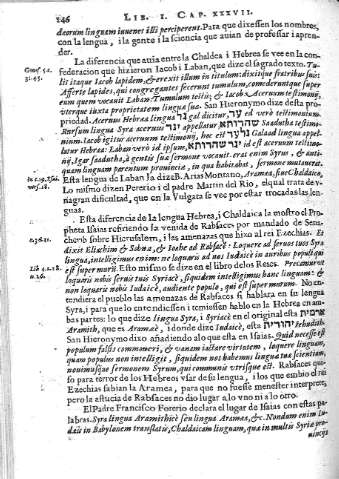 246 LIB. I. CAP. XXXVII.
deorum linguam iuvenes illi perciperent. Para que dixessen los nombres,
con la lengua, i la gente i la sciencia que auian de professar i apren-
der.
La diferencia que auia entre la Chaldea i Hebrea se vee en la con-
federacion que hizieron Iacob i Laban, que dize el sagrado texto. Tu-
lit itaque Iacob lapidem, & erexit illum in titulum: dixitque fratribus suis
Afferte lapides, qui congregantes fecerunt tumulum, comederuntque super
eum quem vocauit Laban: Tumulum testis, & Iacob, Aceruum testimonij,
uterque iuxta proprietatem linguæ suæ. San Hieronymo dize desta pro-
priedad. Aceruus Hebræa lingua גל gal dicitur, יגר verò testimonium.
Rursum lingua Syra aceruus יגר appellatur שהדותא Saadutha testimo-
nium. Iacob igitur aceruum testimonij, hoc est גלעד Galaad lingua appel-
latur Hebræa: Laban verò id ipsum, יגר שהדותא id est aceruum testimo-
nij, Iagar saadutha, à gentis suæ sermone vocauit. erat enim Syrus, & anti-
quam linguam parentum prouincia, in qua habitabat, sermone mutauerat.
Esta lengua de Laban la dize B. Arias Montano, Aramea, sive Chaldaica,
Lo mismo dizen Pererio i el padre Martin del Rio, el qual trata de
diferencia, que en la Vulgata se vee por estar trocadas las len-
guas.
Esta diferencia de la lengua Hebrea, i Chaldaica la mostro el Pro-
pheta Isaias refiriendo la venida de Rabsaces por mandado de Sena-
cherib sobre Hierusalem, i las amenazas que hizo al rei Ezechias. Et
dixit Eliachim & Sobna, & Ioahe ad Rabsach. Loquere ad seruos tuos Syra
lingua, intelligimus enim: ne loquaris ad nos Iudaicè in auribus populi qui
est super murum. Esto mismo se dize en el libro de los Reies. Precamur ut
loquaris nobis seruis tuis Syriacè, siquidem intelligimus hanc linguam: &
non loquaris nobis Iudaicè, audiente populo, qui est super murum. No en-
tendiera el pueblo las amenazas de Rabsaces si hablara en su lengua
Syra, i para que lo entendiessen i temiessen hablo en la Hebrea en am-
bas partes: lo que dize lingua Syra, i Syriacè en el original esta ארמית
Aramith, que es Aramæa, i donde dize Iudaicè, esta יהודית Iehudith.
San Hieronymo dixo añadiendo alo que esta en Isaias. Quid necesse est
populum falso commoueri, & vanum iactare virtutem, loquere linguam,
quam populus non intelligit, siquidem nos habemus linguæ tuæ scientiam,
nouimusque sermonem Syrum, qui communis vtrisque est. Rabsaces qui-
so para terror de los Hebreos vsar de su lengua, i los que embio el rei
Ezechias sabian la Aramea, para que no fuesse menester interprete,
pero la astucia de Rabsaces no dio lugar a lo vno ni a lo otro.
El Padre Francisco Forerio declara el lugar de Isaias con estas pa-
labras. Syra lingua Aramithicè seu lingua Aramæa, &c. Nondum enim Iu-
dæis in Babylonem translatis, Chaldaicam linguam, quæ in multis Syriæ pro-
uincijs